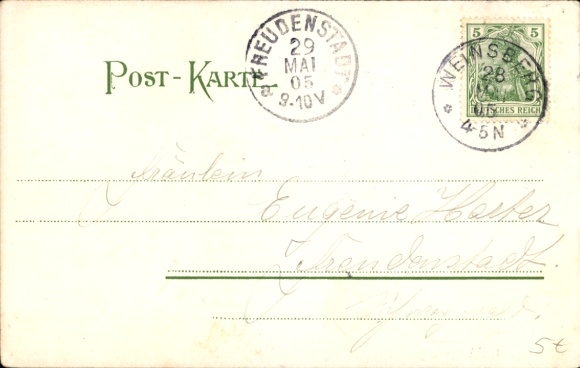 POST-KARTE
FREUDENSTADT
29
MAI
05
9-10V
5 5
DEUTSCHES REICH
WEINSBERG
28
05
4-5N
Fräulein
Eugenie
Freudenstadt.
5€